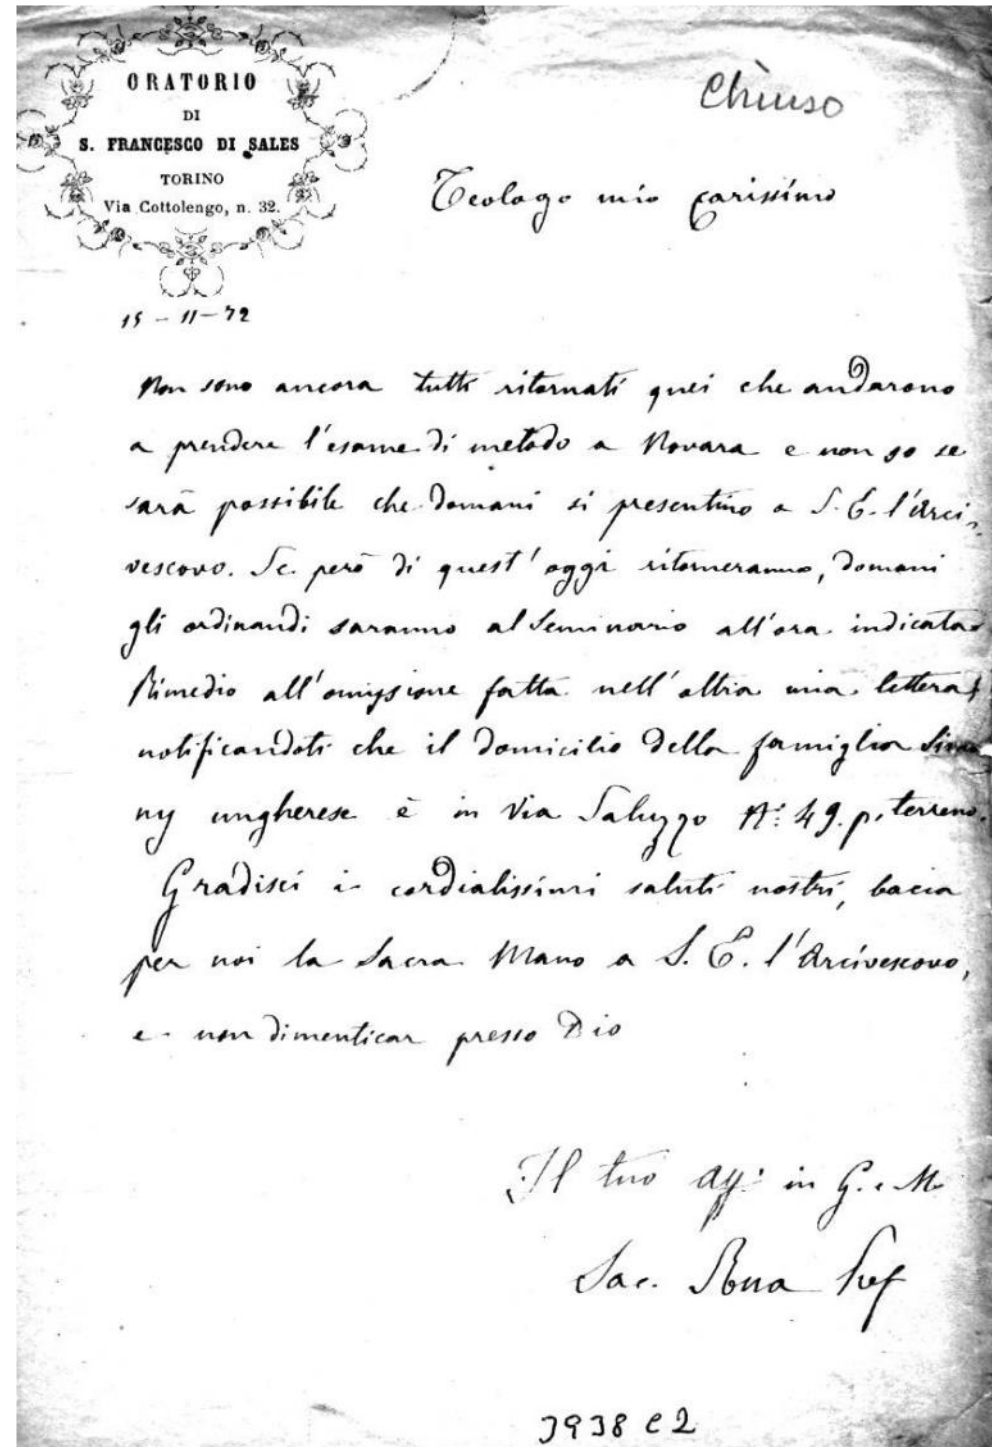 ORATORIO
DI
S. FRANCESCO DI SALES
TORINO
Via Cottolengo, n. 32.
Chiuso
Teologo mio carissimo
15-11-72
Non sono ancora tutti ritornati quei che andarono
a prendere l'esame di metodo a Novara e non so se
sarà possibile che domani si presentino a S. E. l'Arci-
vescovo. Se però di quest'oggi ritorneranno, domani
gli ordinandi saranno al Seminario all'ora indicata.
Rimedio all'omissione fatta nell'altra mia lettera
notificandoti che il domicilio della famiglia
ny ungherese è in Via Saluzzo N.° 49. p. terreno.
Gradisci i cordialissimi saluti nostri, bacia
per noi la Sacra Mano a S. E. l'Arcivescovo,
e non dimenticar presso Dio
Il tuo aff.° in G. e M.
Sac. Rua Pref
3938 C2